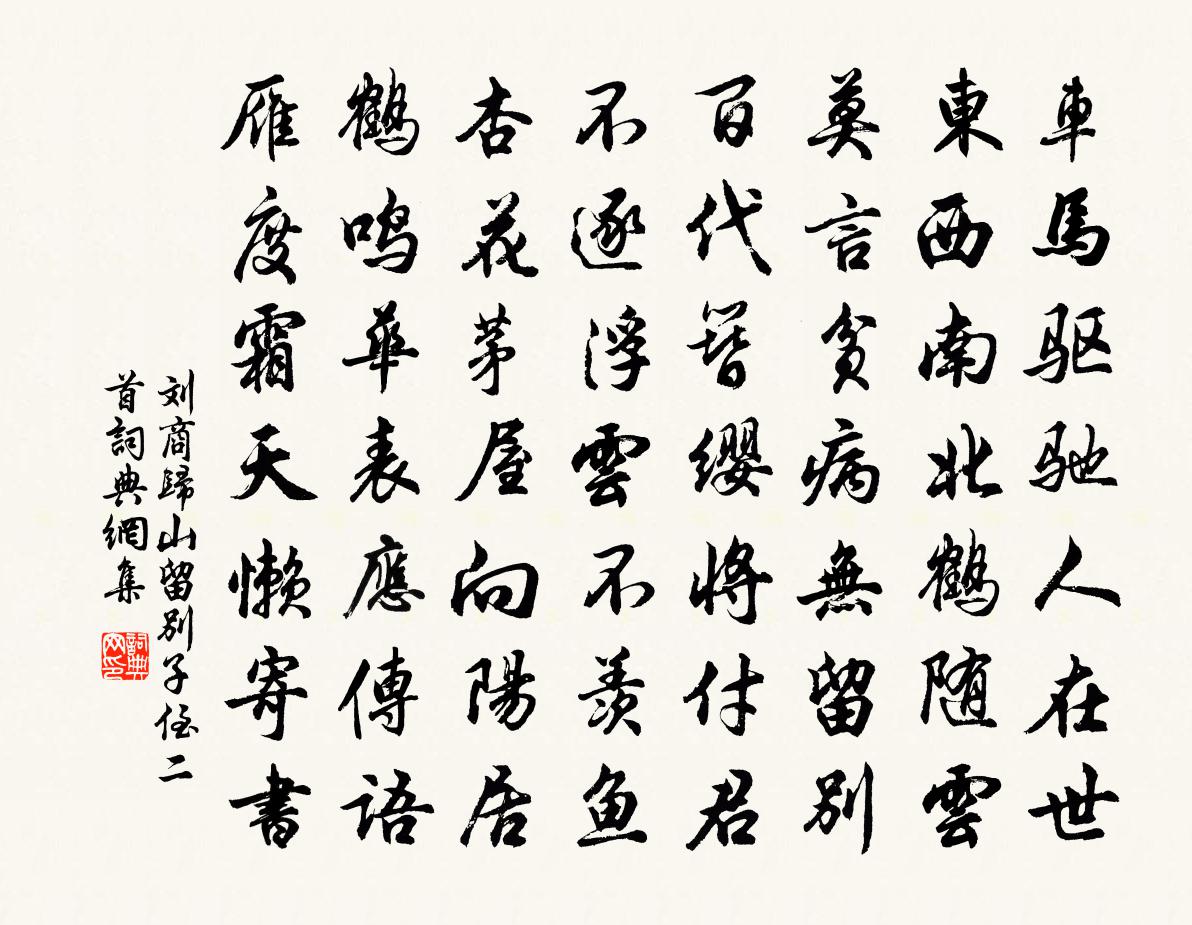 車馬驱馳人在世
東西南北鶴随雲
莫言貧病無留別
百代簪纓將付君
不逐浮雲不羡鱼
杏花茅屋向陽居
鶴鳴華表應傳語
雁度霜天懒寄書
刘商歸山留別子侄二
首詞典網集
詞典网印